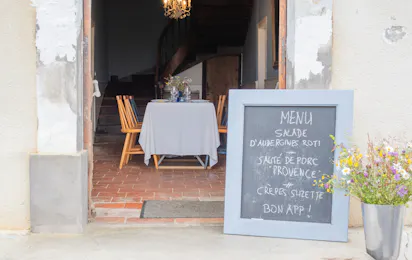 MENU
SALADE
D'AUBERGINES ROTI
SAUTÉ DE PORC
"PROVENCE"
CRÊPES SUZETTE
BON APP!